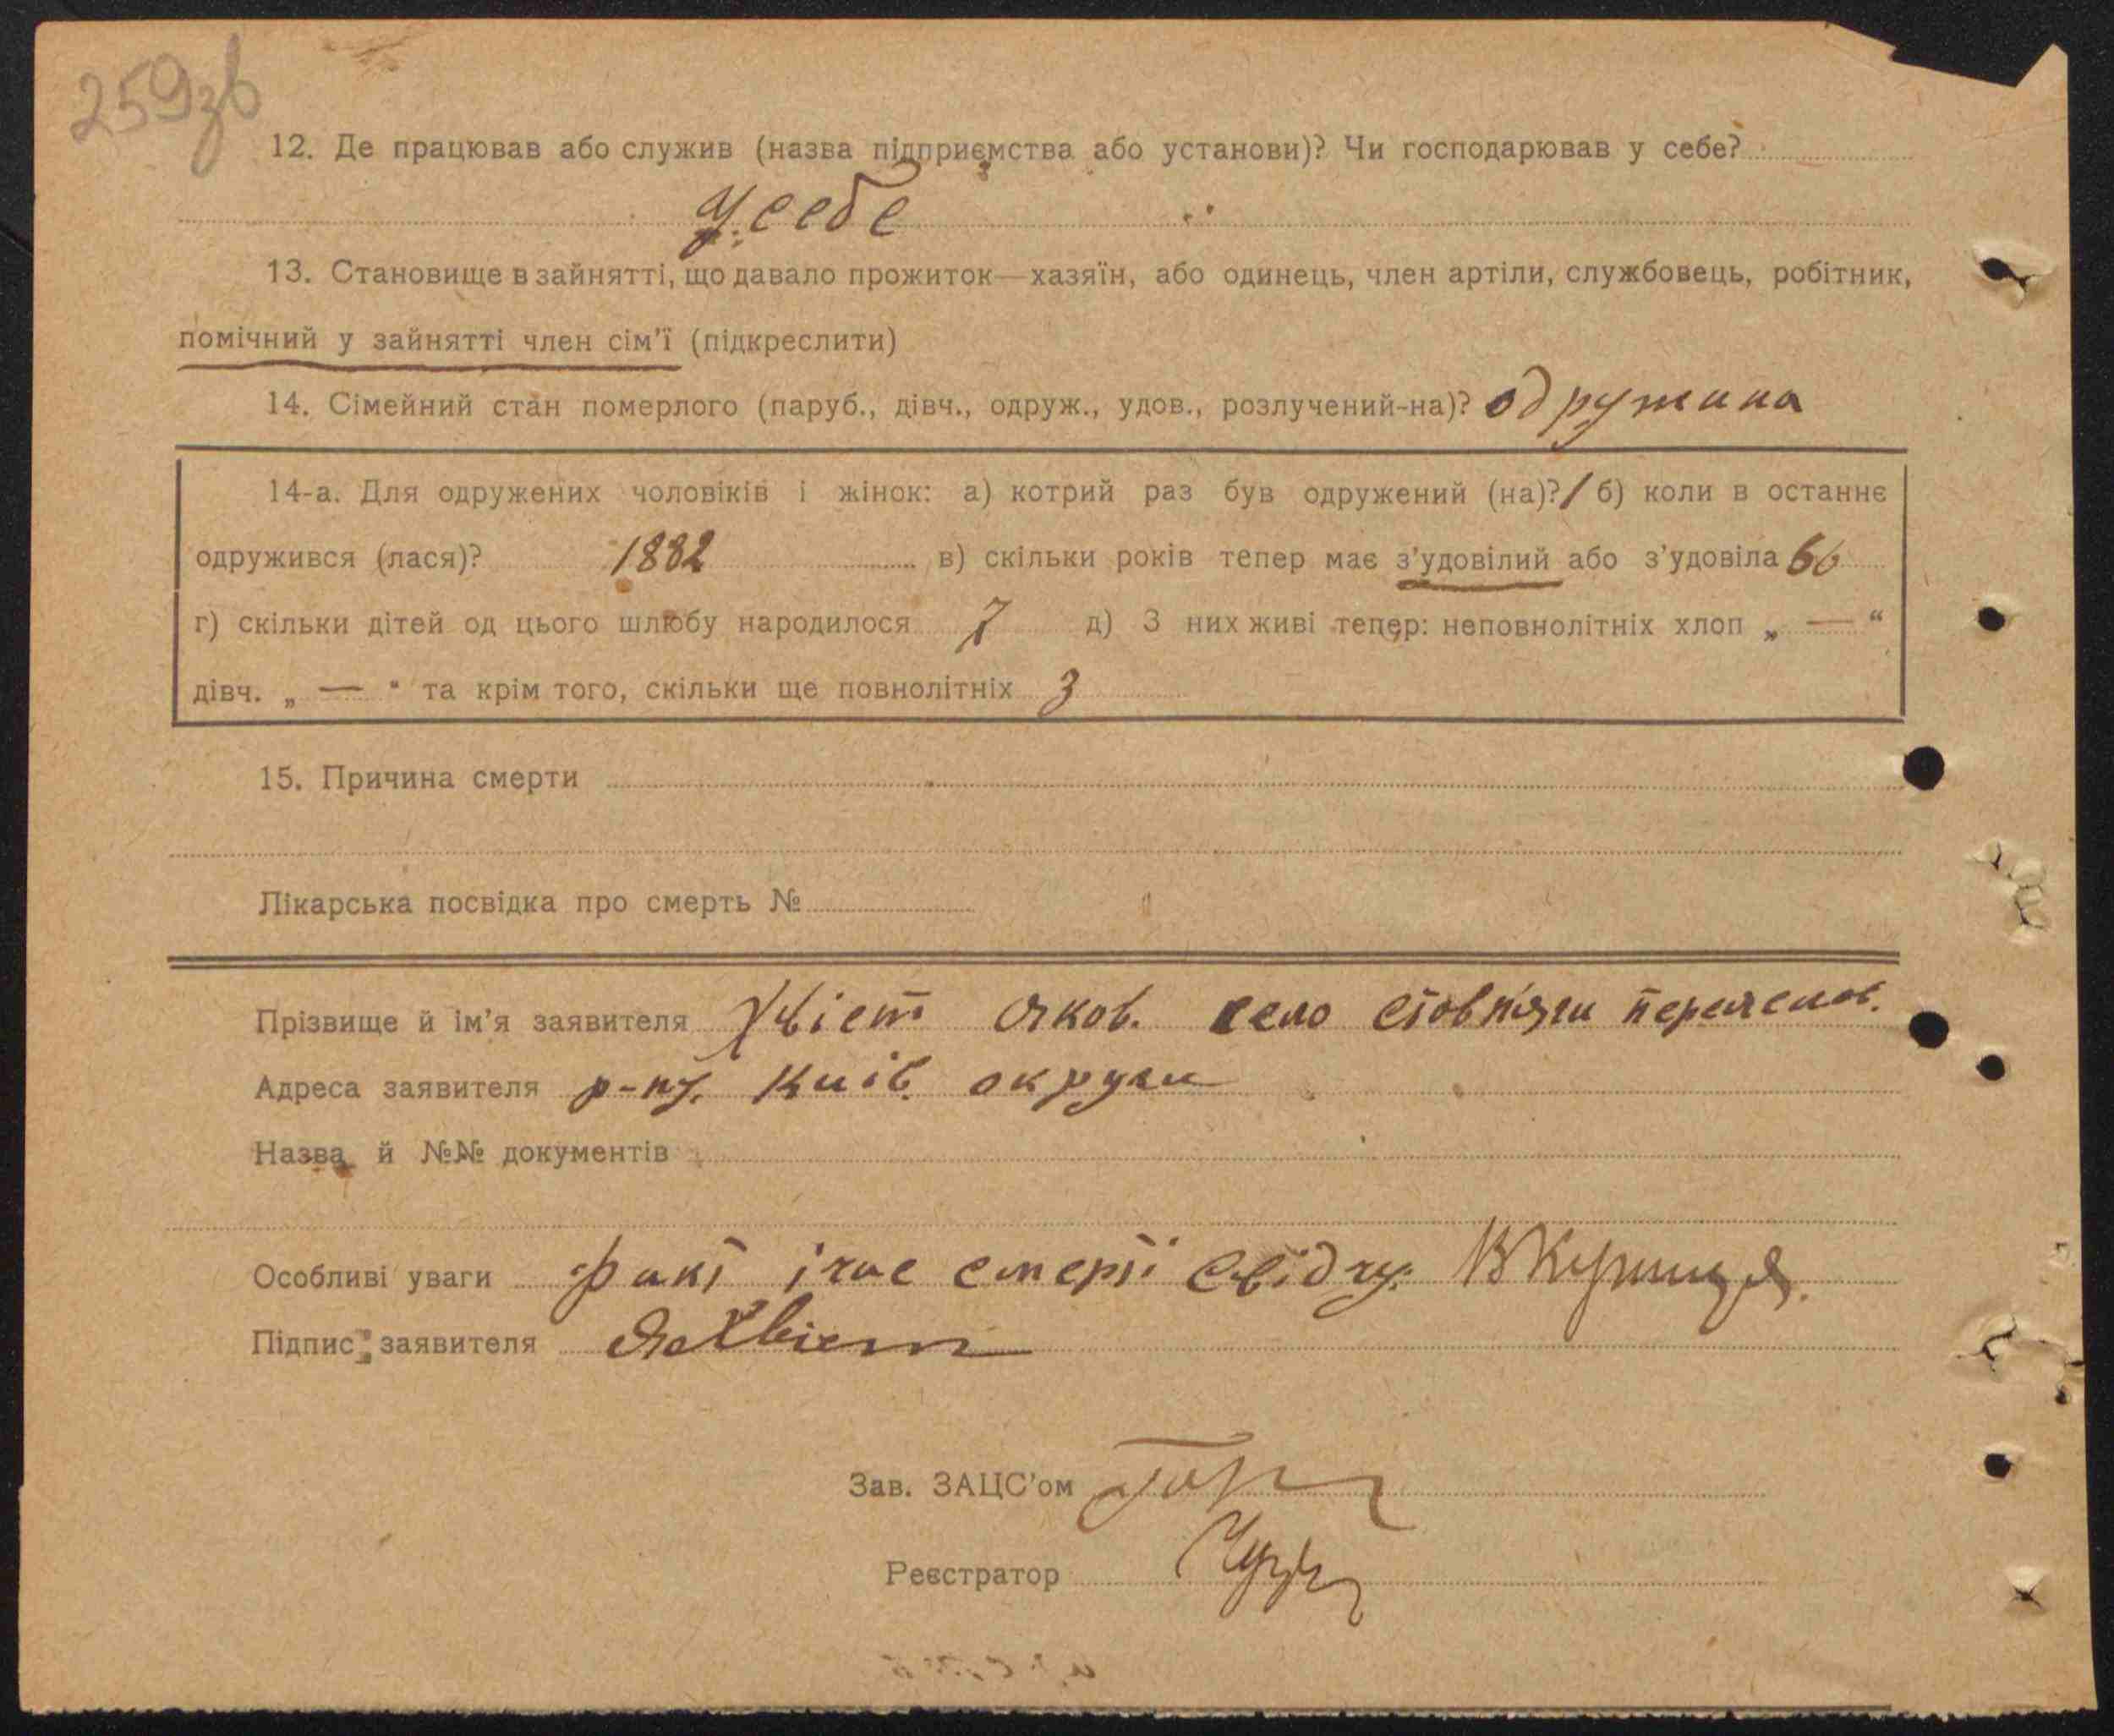 259зв
12. Де працював або служив (назва підприємства або установи)? Чи господарював у себе?
У себе
13. Становище в зайнятті, що давало прожиток—хазяїн, або одинець, член артіли, службовець, робітник,
помічний у зайнятті член сім'ї (підкреслити)
14. Сімейний стан померлого (паруб., дівч., одруж., удов., розлучений-на)? одружина
14-а. Для одружених чоловіків і жінок: а) котрий раз був одружений (на)? 1 б) коли в останнє
одружився (лася)? 1882 в) скільки років тепер має з'удовілий або з'удовіла 66
г) скільки дітей од цього шлюбу народилося 7 д) З них живі тепер: неповнолітніх хлоп „ — “
дівч. „ — “ та крім того, скільки ще повнолітніх 3
15. Причина смерти
Лікарська посвідка про смерть №
Прізвище й ім'я заявителя Хвіст Яков. село Стовп'яги Переяслов.
Адреса заявителя р-ну. Київ. округи
Назва й №№ документів
Особливі уваги факт і час смерті свідчу:
Підпис заявителя Я Хвіст
Зав. ЗАЦС'ом
Реєстратор